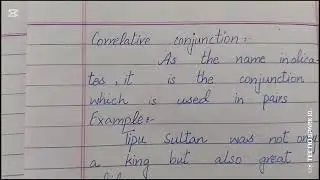 Correlative conjunction:-
As the name indica
tes, it is the conjunction
which is used in pairs
Example:-
Tipu Sultan was not only
a king but also great